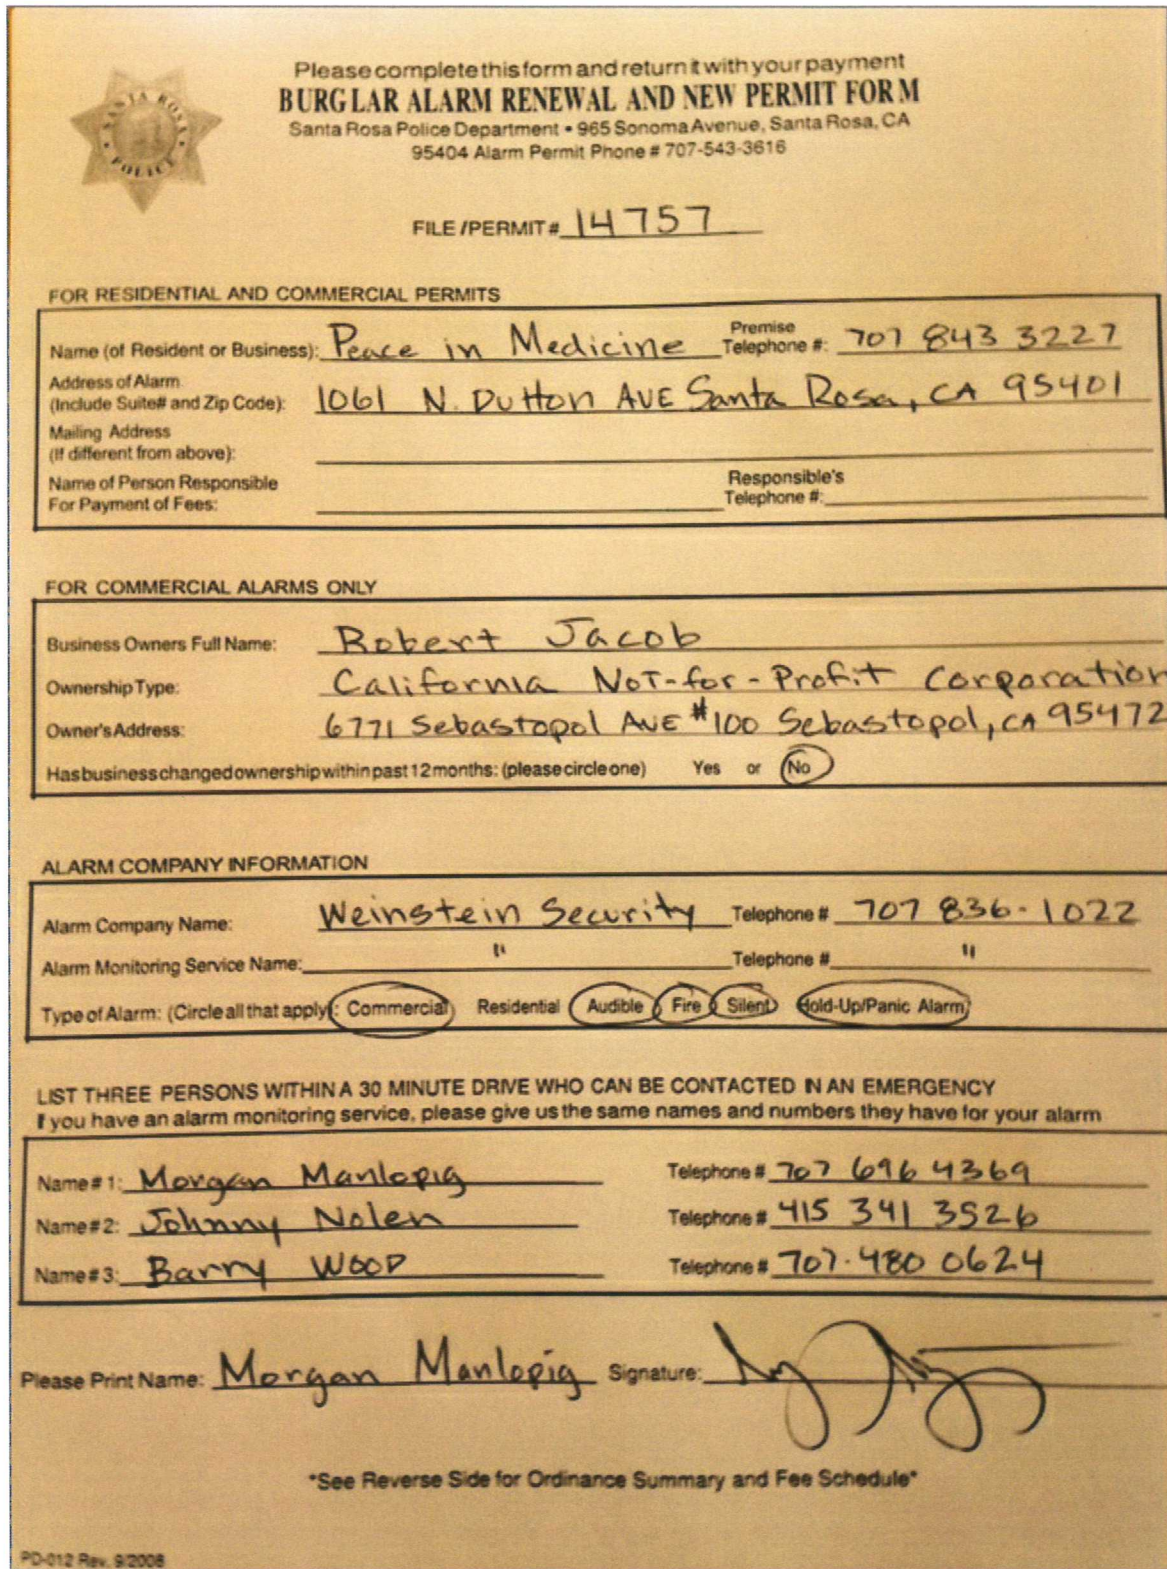 SANTA ROSA
POLICE
Please complete this form and return it with your payment
BURGLAR ALARM RENEWAL AND NEW PERMIT FORM
Santa Rosa Police Department • 965 Sonoma Avenue, Santa Rosa, CA
95404 Alarm Permit Phone # 707-543-3616
FILE/PERMIT# 14757
FOR RESIDENTIAL AND COMMERCIAL PERMITS
Name (of Resident or Business): Peace in Medicine Premise Telephone #: 707 843 3227
Address of Alarm
(Include Suite# and Zip Code): 1061 N. Dutton AVE Santa Rosa, CA 95401
Mailing Address
(If different from above):
Name of Person Responsible Responsible's
For Payment of Fees: Telephone #:
FOR COMMERCIAL ALARMS ONLY
Business Owners Full Name: Robert Jacob
Ownership Type: California Not-for-Profit Corporation
Owner's Address: 6771 Sebastopol AVE #100 Sebastopol, CA 95472
Has business changed ownership within past 12 months: (please circle one) Yes or No
ALARM COMPANY INFORMATION
Alarm Company Name: Weinstein Security Telephone # 707 836-1022
Alarm Monitoring Service Name: " Telephone # "
Type of Alarm: (Circle all that apply): Commercial Residential Audible Fire Silent Hold-Up/Panic Alarm
LIST THREE PERSONS WITHIN A 30 MINUTE DRIVE WHO CAN BE CONTACTED IN AN EMERGENCY
If you have an alarm monitoring service, please give us the same names and numbers they have for your alarm
Name #1: Morgan Manlopig Telephone # 707 696 4369
Name #2: Johnny Nolen Telephone # 415 341 3526
Name #3: Barry WOOD Telephone # 707-480 0624
Please Print Name: Morgan Manlopig Signature:
*See Reverse Side for Ordinance Summary and Fee Schedule*
PD-012 Rev. 9/2008